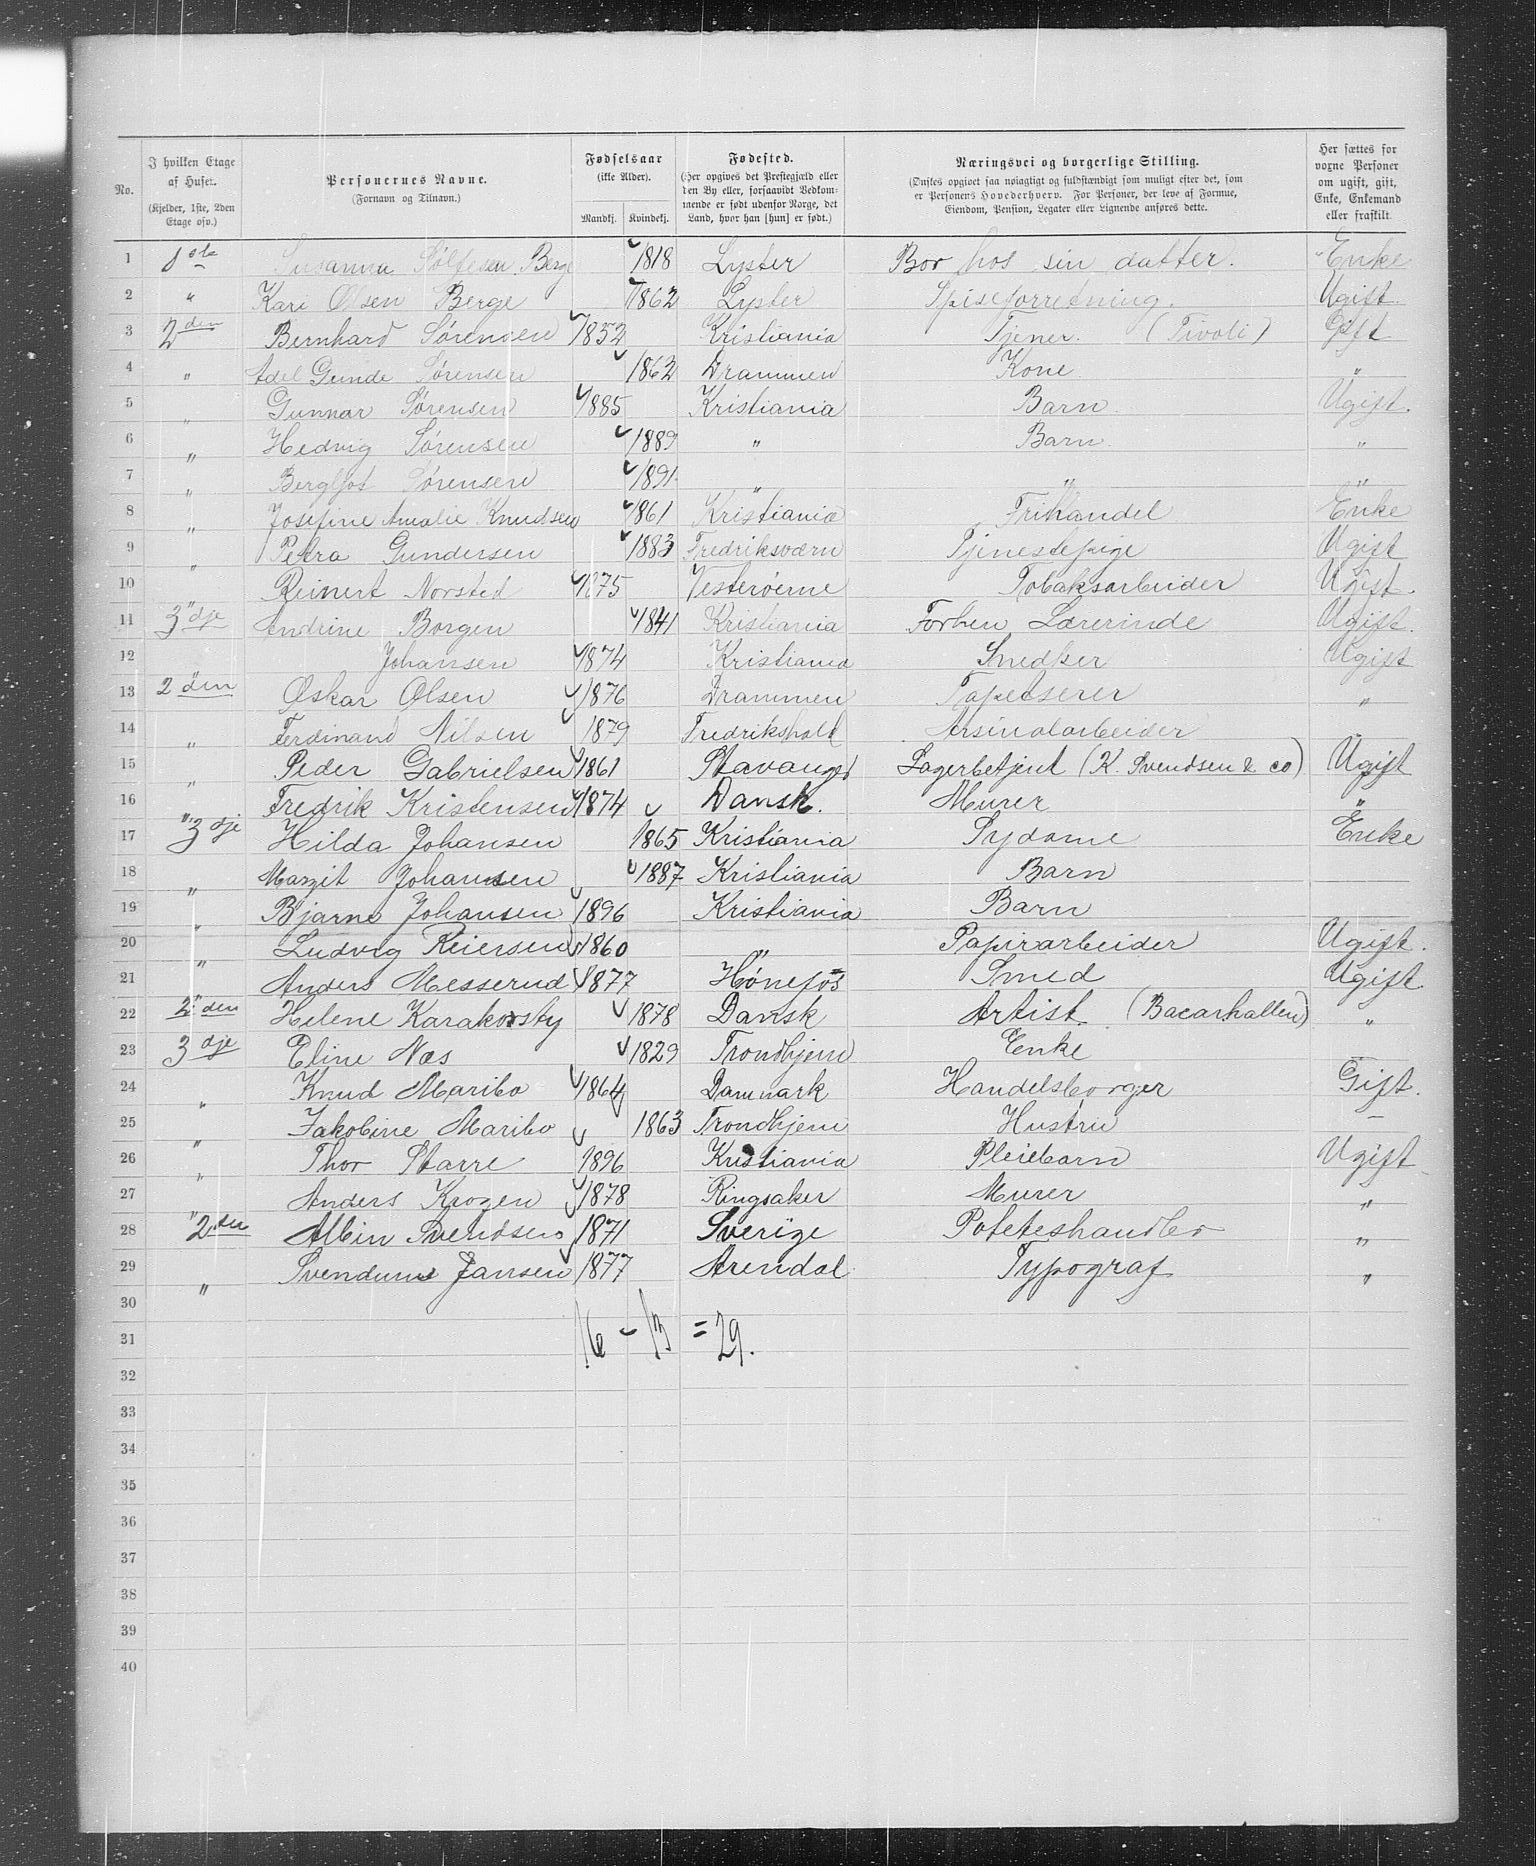 No. | I hvilken Etage af Huset. (Kjelder, 1ste, 2den Etage osv.) | Personernes Navne. (Fornavn og Tilnavn.) | Fødselsaar (ikke Alder). Mandkj. | Kvindekj. | Fødested. (Her opgives det Prestegjæld eller den By eller, forsaavidt Vedkommende er født udenfor Norge, det Land, hvor han [hun] er født.) | Næringsvei og borgerlige Stilling. (Ønskes opgivet saa nøiagtigt og fuldstændigt som muligt efter det, som er Personens Hovederhverv. For Personer, der leve af Formue, Eiendom, Pension, Legater eller Lignende anføres dette. | Her sættes for voxne Personer om ugift, gift, Enke, Enkemand eller fraskilt.
1 | 1ste | Susanna Berge | 1818 | Lyster | Bor hos sin datter. | Enke
2 | " | Kari Olsen Berge | 1862 | Lyster | Spiseforretning. | Ugift.
3 | 2den | Bernhard Sørensen | 1852 | Kristiania | Tjener. (Tivoli) | Gift
4 | " | Adel Gunde Sørensen | 1862 | Drammen | Kone | "
5 | " | Gunnar Sørensen | 1885 | Kristiania | Barn | Ugift.
6 | " | Hedvig Sørensen | 1889 | " | Barn | "
7 | " | Bergljot Sørensen | 1891 | " | " | "
8 | " | Josefine Amalie Knudsen | 1861 | Kristiania | Frihandel | Enke
9 | " | Petra Gundersen | 1883 | Fredriksværn | Tjenestepige | Ugift
10 | " | Reinert Norsted | 1875 | Vesterøerne | Tobaksarbeider | Ugift.
11 | 3dje | Andrine Borgen | 1841 | Kristiania | Forhen Lærerinde | Ugift.
12 | " | Johansen | 1874 | Kristiania | Snedker | Ugift
13 | 2den | Oskar Olsen | 1876 | Drammen | Tapetserer | "
14 | " | Ferdinand Nilsen | 1879 | Fredrikshald | Arsinalarbeider
15 | " | Peder Gabrielsen | 1861 | Stavanger | Lagerbetjent (K. Svendsen & co) | Ugift
16 | " | Fredrik Kristensen | 1874 | Dansk. | Murer | "
17 | 3dje | Hilda Johansen | 1865 | Kristiania | Sydame | Enke
18 | " | Margit Johansen | 1887 | Kristiania | Barn
19 | " | Bjarne Johansen | 1896 | Kristiania | Barn
20 | " | Ludvig Reiersen | 1860 | " | Papirarbeider | Ugift.
21 | " | Anders Messerud | 1877 | Hønefos | Smed | Ugift
22 | 2den | Helene Karakorsky | 1878 | Dansk | Artist. (Bacarhallen) | "
23 | 3dje | Eline Næs | 1829 | Trondhjem | Enke
24 | " | Knud Maribo | 1864 | Danmark | Handelsborger | Gift.
25 | " | Jakobine Maribo | 1863 | Trondhjem | Hustru | –
26 | " | Thor Starre | 1896 | Kristiania | Pleiebarn | Ugift
27 | " | Anders Krogen | 1878 | Ringsaker | Murer | "
28 | 2den | Albin Svendsen | 1871 | Sverige | Poteteshandler | "
29 | " | Svendum Jansen | 1877 | Arendal | Typograf | "
30
31 | 16 – 13 = 29.
32
33
34
35
36
37
38
39
40